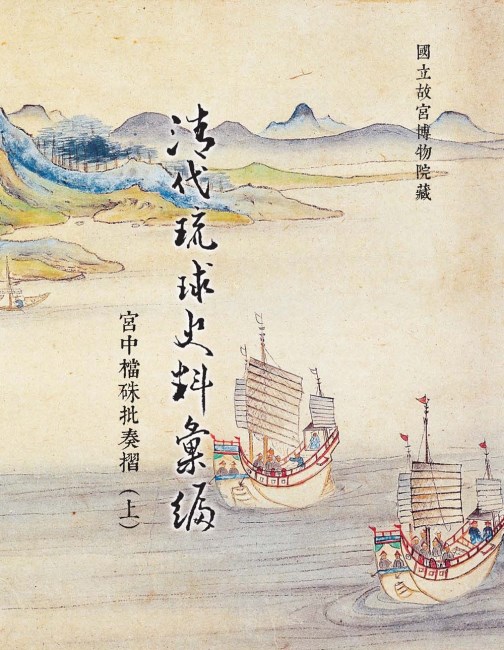 國立故宮博物院藏
清代琉球史料彙編
宮中檔硃批奏摺(上)